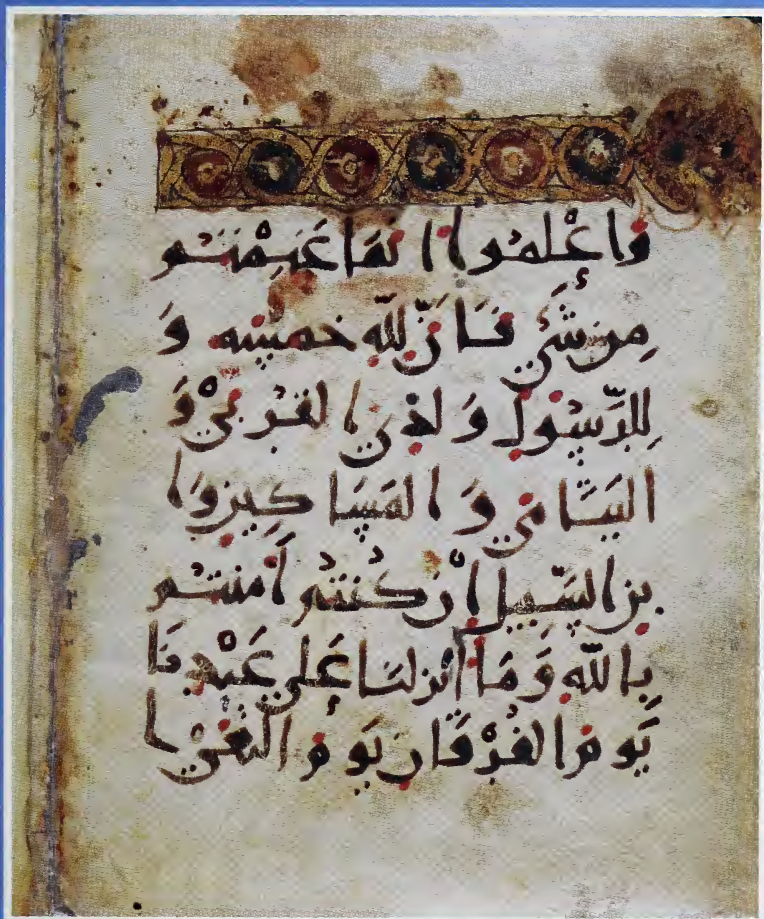 وَاعْلَمُوا انَّمَا غَنِمْتُم
مِن شَيْءٍ فَاَنَّ لِلَّهِ خُمُسَهُ وَ
لِلرَّسُولِ وَلِذِي الْقُرْبَىٰ وَ
الْيَتَامَىٰ وَالْمَسَاكِينِ وَا
بْنِ السَّبِيلِ إِن كُنتُمْ آمَنتُم
بِاللَّهِ وَمَا أَنزَلْنَا عَلَىٰ عَبْدِنَا
يَوْمَ الْفُرْقَانِ يَوْمَ الْتَقَى ا